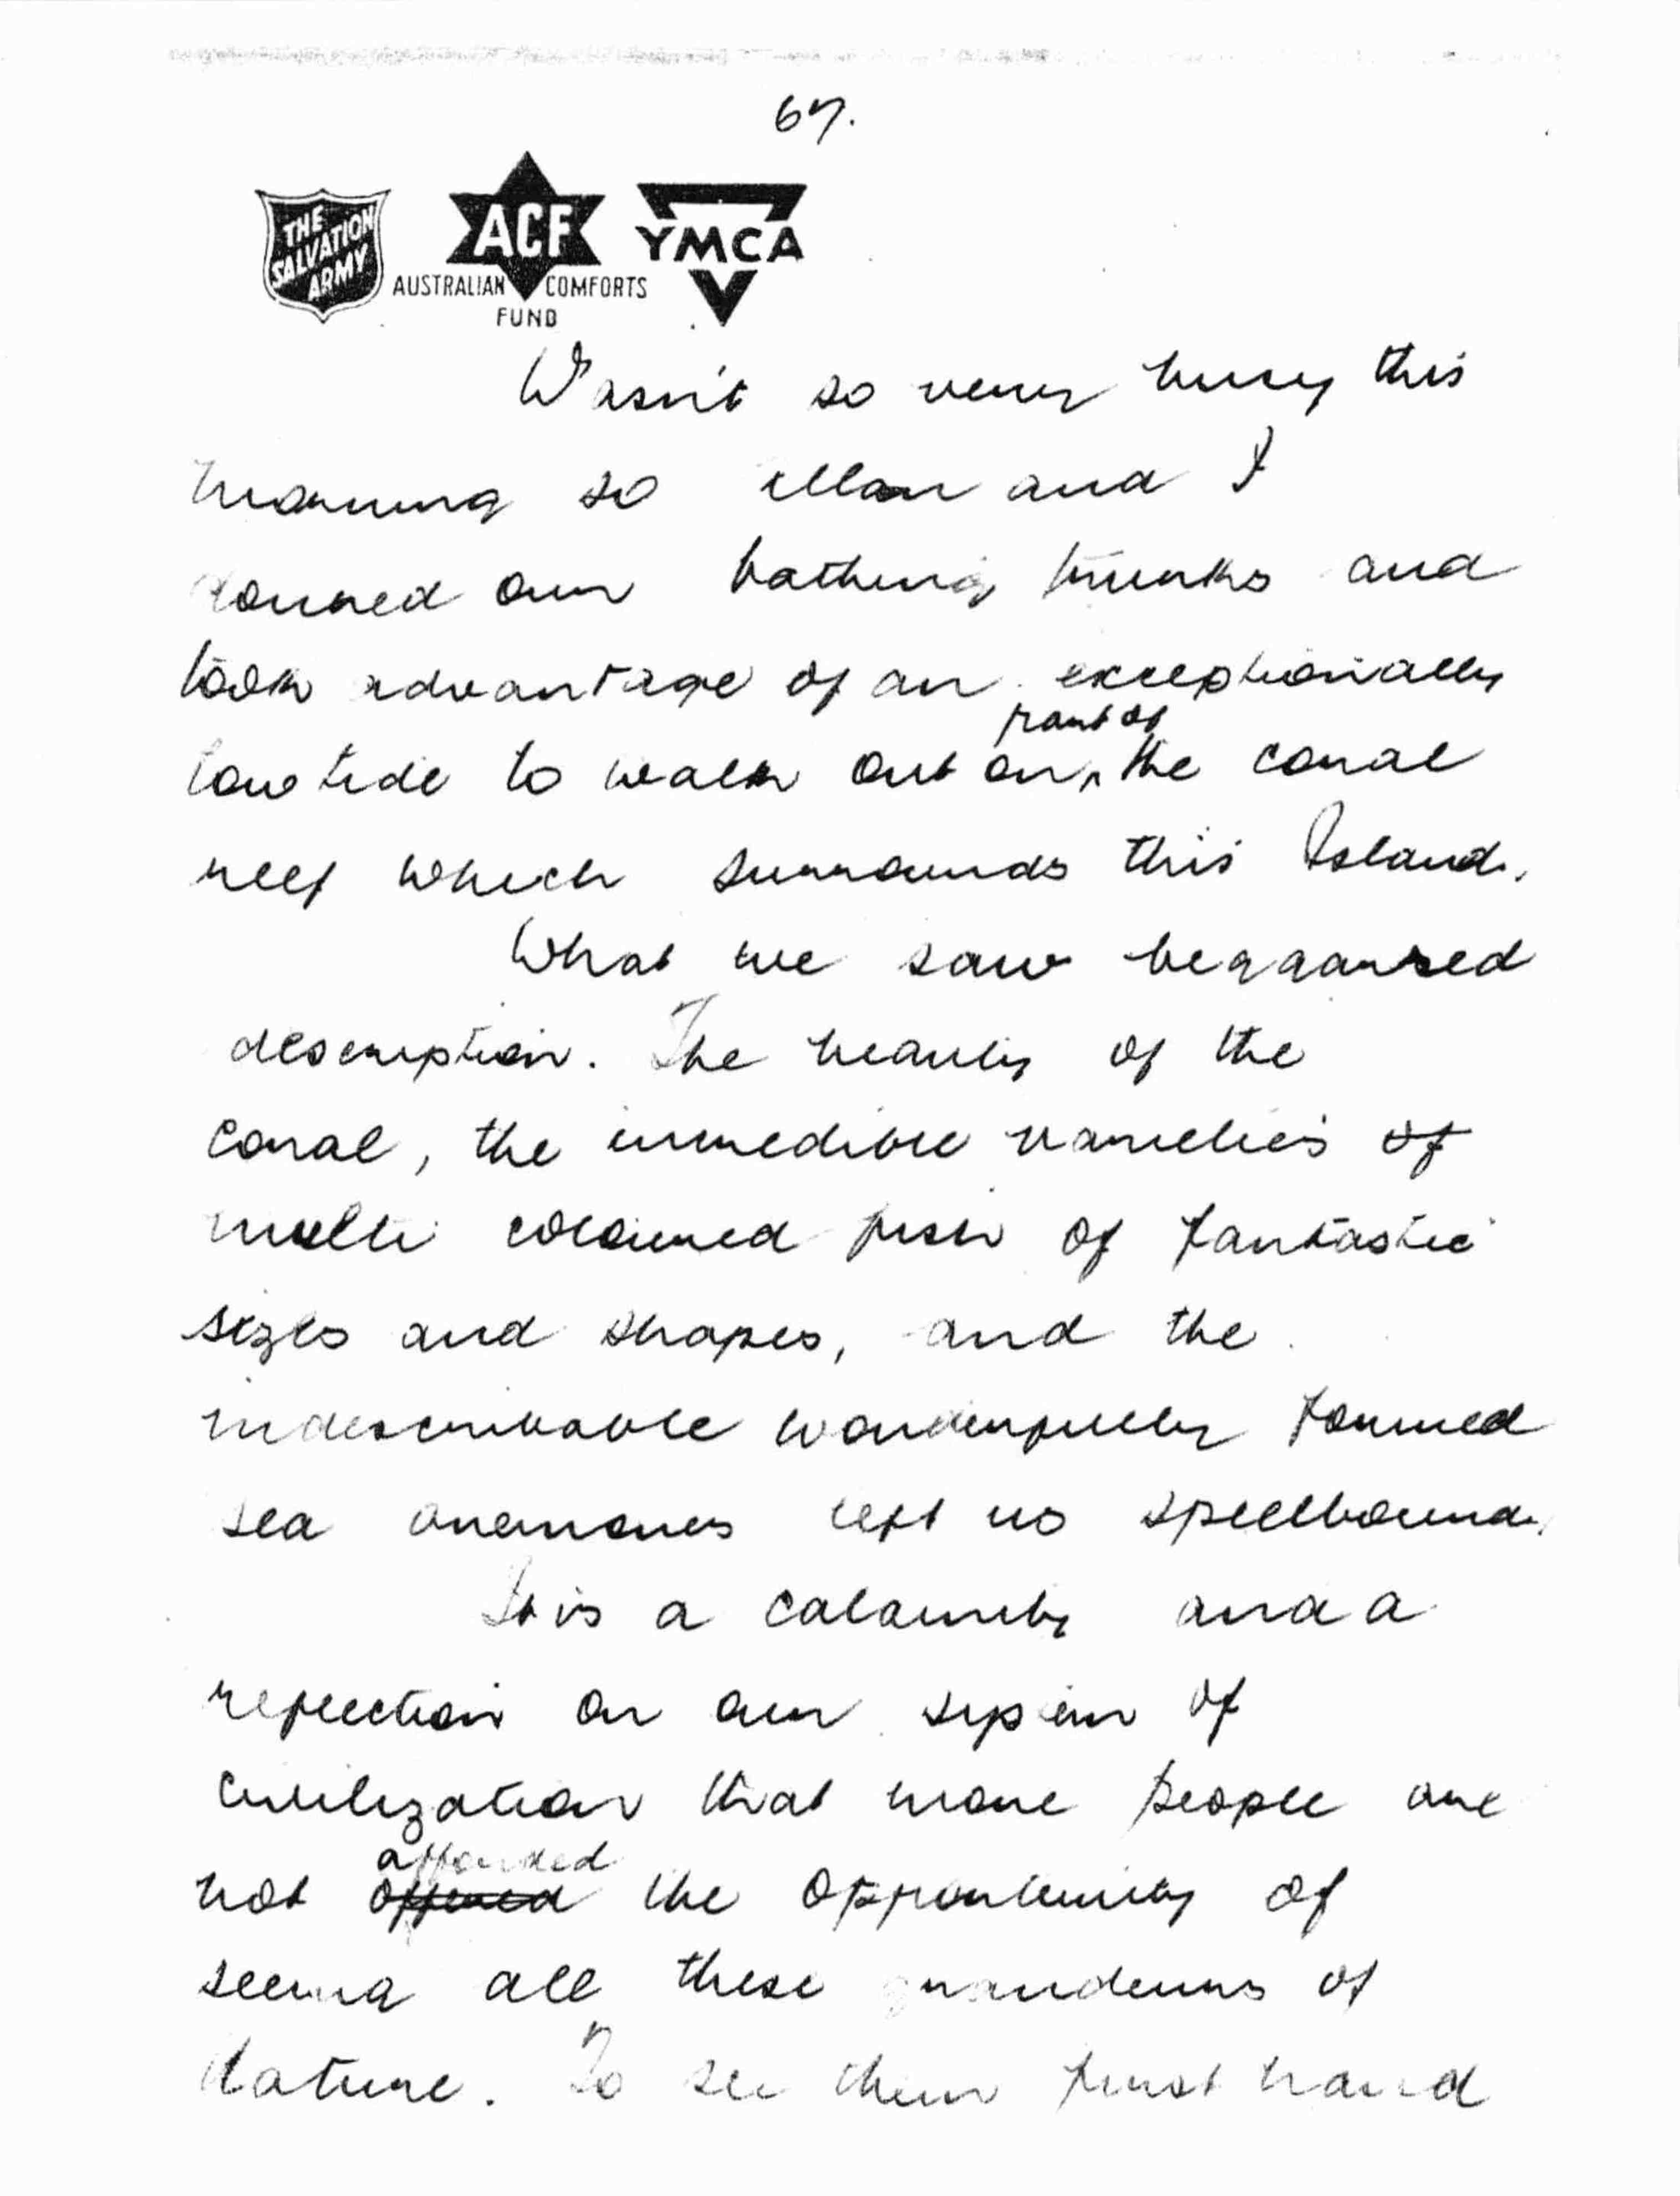 67.
THE SALVATION ARMY
ACF
AUSTRALIAN COMFORTS FUND
YMCA
Wasn't so very busy this
morning so Allan and I
donned our bathing trunks and
took advantage of an exceptionally
part of
low tide to walk out on ^ the coral
reef which surrounds this Island.
What we saw beggared
description. The beauty of the
coral, the incredible varieties of
multi coloured fish of fantastic
sizes and shapes, and the
indescribable wonderfully formed
sea anemones left us spellbound.
It is a calamity and a
reflection on our system of
civilization that more people are
afforded
not offered the opportunity of
seeing all these grandeurs of
Nature. To see them first hand